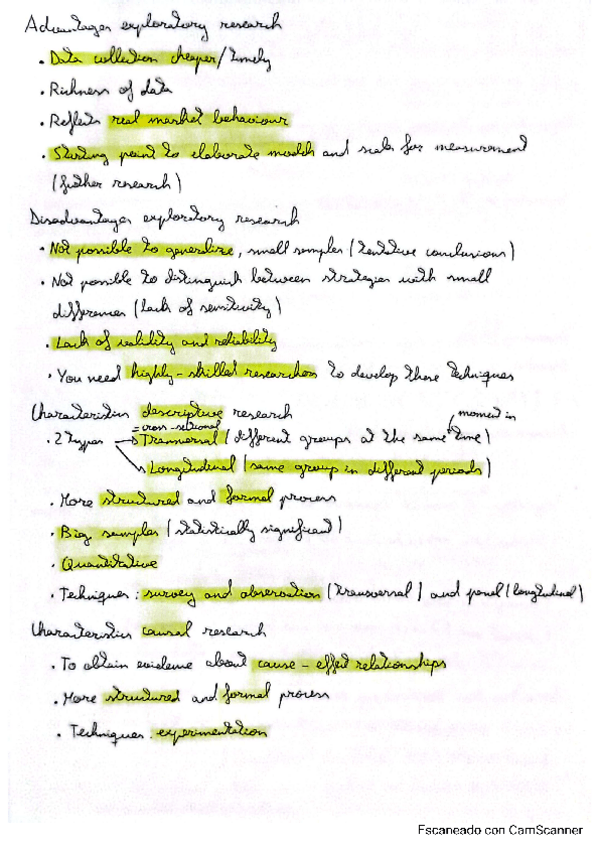 Advantages exploratory research
• Data collection cheaper/timely
• Richness of data
• Reflects real market behaviour
• Starting point to elaborate models and scales for measurement
(further research)
Disadvantages exploratory research
• Not possible to generalize, small samples (tentative conclusions)
• Not possible to distinguish between strategies with small
differences (lack of sensitivity)
• Lack of validity and reliability
• You need highly-skilled researchers to develop these techniques
Characteristics descriptive research
= cross-sectional
moment in
• 2 types → Transversal (different groups at the same time)
→ Longitudinal (same group in different periods)
• More structured and formal process
• Big samples (statistically significant)
• Quantitative
• Techniques: survey and observation (transversal) and panel (longitudinal)
Characteristics causal research
• To obtain evidence about cause-effect relationships
• More structured and formal process
• Techniques: experimentation
Escaneado con CamScanner